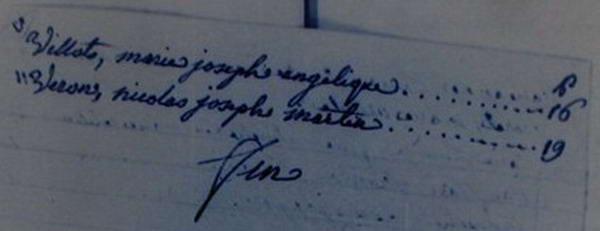 Villots, marie joseph angelique .......... 16
Veron, nicolas joseph martin .......... 19
fin